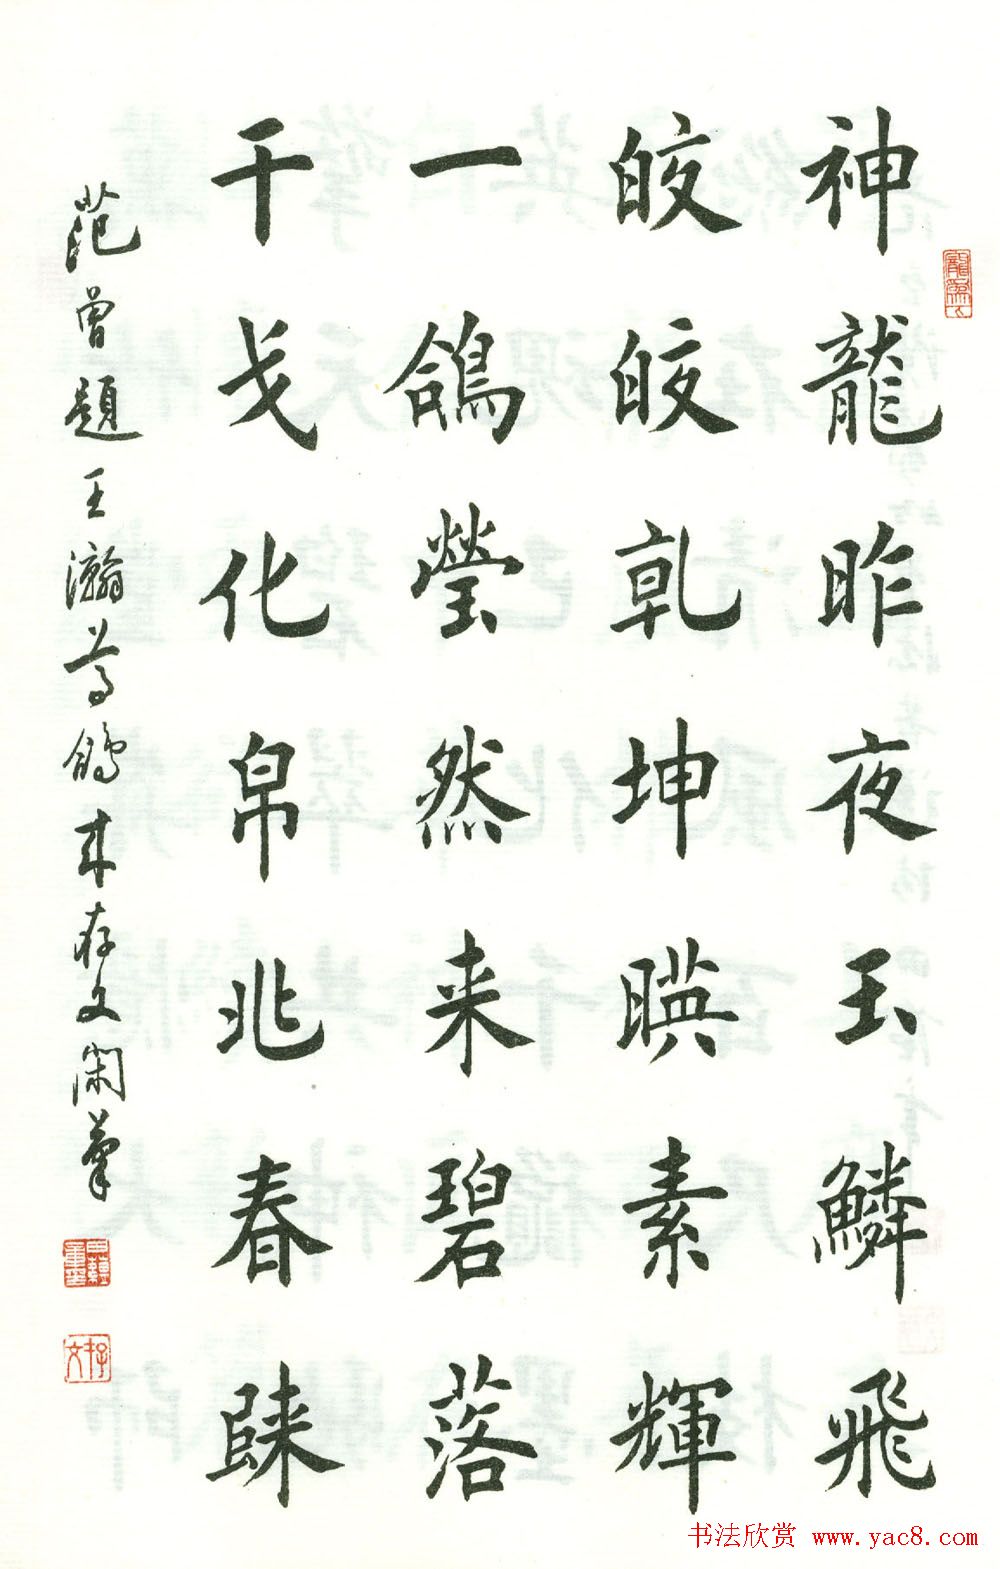 神龍昨夜玉鱗飛
皎皎乾坤暎素輝
一鴿瑩然来碧落
干戈化帛兆春歸
范曾題王瀚鴿朱存文閑筆
存文
书法欣赏 www.yac8.com